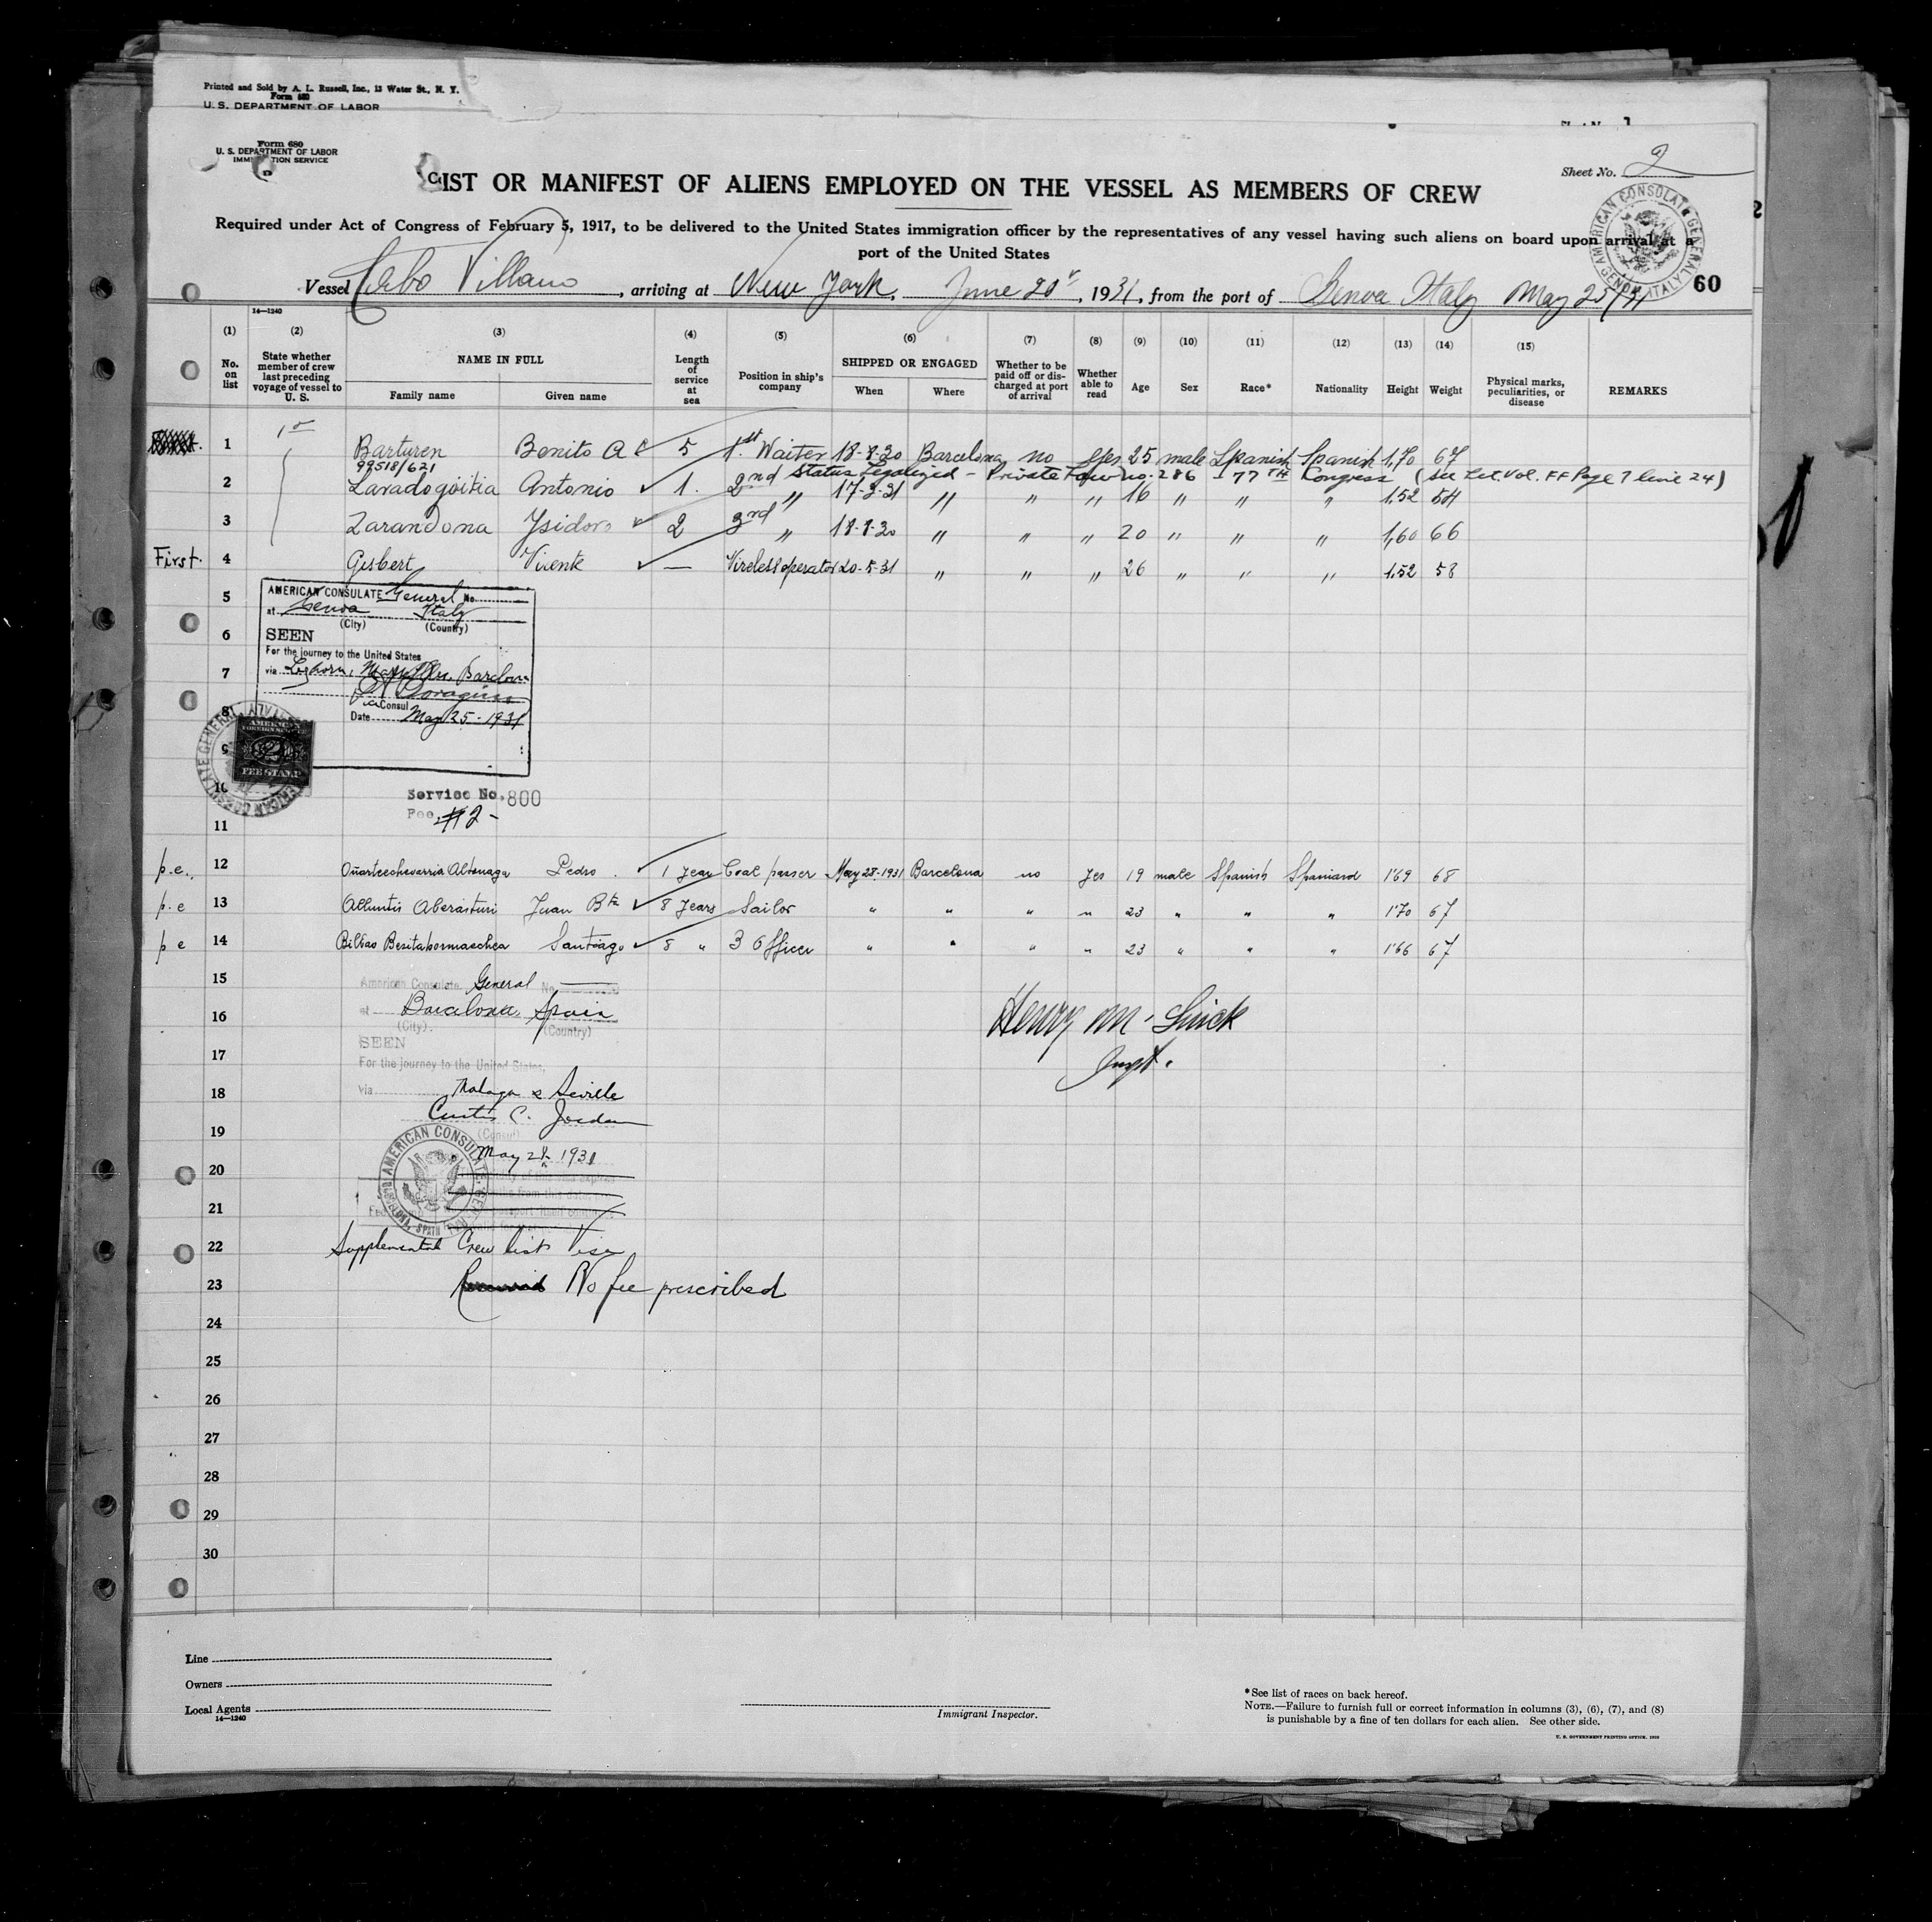 Printed and Sold by A. L. Russell, Inc., 13 Water St., N. Y.
Form 680
U. S. DEPARTMENT OF LABOR
Form 680
U. S. DEPARTMENT OF LABOR
IMMIGRATION SERVICE
Sheet No. 2
LIST OR MANIFEST OF ALIENS EMPLOYED ON THE VESSEL AS MEMBERS OF CREW
Required under Act of Congress of February 5, 1917, to be delivered to the United States immigration officer by the representatives of any vessel having such aliens on board upon arrival at a
port of the United States
AMERICAN CONSULATE GENERAL GENOA ITALY
Vessel Cabo Villano, arriving at New York, June 20", 1931, from the port of Genoa Italy May 25/31
60
14—1240
(1) (2) (3) (4) (5) (6) (7) (8) (9) (10) (11) (12) (13) (14) (15)
No. on list
State whether member of crew last preceding voyage of vessel to U. S.
NAME IN FULL
Family name Given name
Length of service at sea
Position in ship's company
SHIPPED OR ENGAGED
When Where
Whether to be paid off or discharged at port of arrival
Whether able to read
Age Sex Race* Nationality Height Weight
Physical marks, peculiarities, or disease
REMARKS
1 Barturen Benito A 5 1st Waiter 18-8-30 Barcelona no yes 25 male Spanish Spanish 1,70 67
99518/621 Status Legalized - Private Law No. 286 - 77TH Congress (See Let. Vol. FF Page 7 line 24)
2 Lavadogoitia Antonio 1. 2nd " 17-3-31 " " " 16 " " " 1,52 54
3 Zarandona Ysidoro 2 3rd " 18-8-30 " " " 20 " " " 1,60 66
First. 4 Gisbert Vicente — Vireless operator 20-5-31 " " " 26 " " " 1,52 58
5
AMERICAN CONSULATE General No.
at Genoa Italy
(City) (Country)
6
SEEN
For the journey to the United States
7
via Leghorn, Marseilles, Barcelona
Vice Consul
8
Date May 25 - 1931
9
AMERICAN FOREIGN SERVICE
2
FEE STAMP
10
Service No. 800
Fee $2-
11
p.e. 12 Oñartechevarria Altonaga Pedro. 1 year Coal passer May 28-1931 Barcelona no yes 19 male Spanish Spaniard 1'69 68
p.e 13 Alluntis Aberasturi Juan Bta 8 years Sailor " " " " 23 " " " 1'70 67
p e 14 Bilbao Besitabormaechea Santiago 8 " 3 Officer " " " " 23 " " " 1'66 67
15
American Consulate General No.
16
at Barcelona, Spain
(City). (Country)
Henry M. Smick
Inspt.
SEEN
17
For the journey to the United States,
18
via Malaga & Seville
Curtis C. Jordan
19
(Consul)
May 28 1931
AMERICAN CONSULATE GENERAL BARCELONA, SPAIN
20
21
22 Supplemental Crew List Visa
23 No fee prescribed
24
25
26
27
28
29
30
Line
Owners
Local Agents
14—1240
Immigrant Inspector.
*See list of races on back hereof.
NOTE.—Failure to furnish full or correct information in columns (3), (6), (7), and (8)
is punishable by a fine of ten dollars for each alien. See other side.
U. S. GOVERNMENT PRINTING OFFICE. 1929